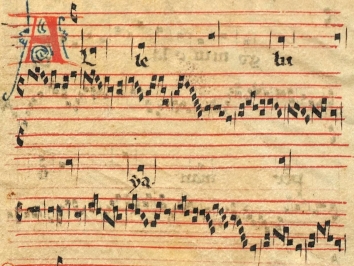 A L le lu
ya